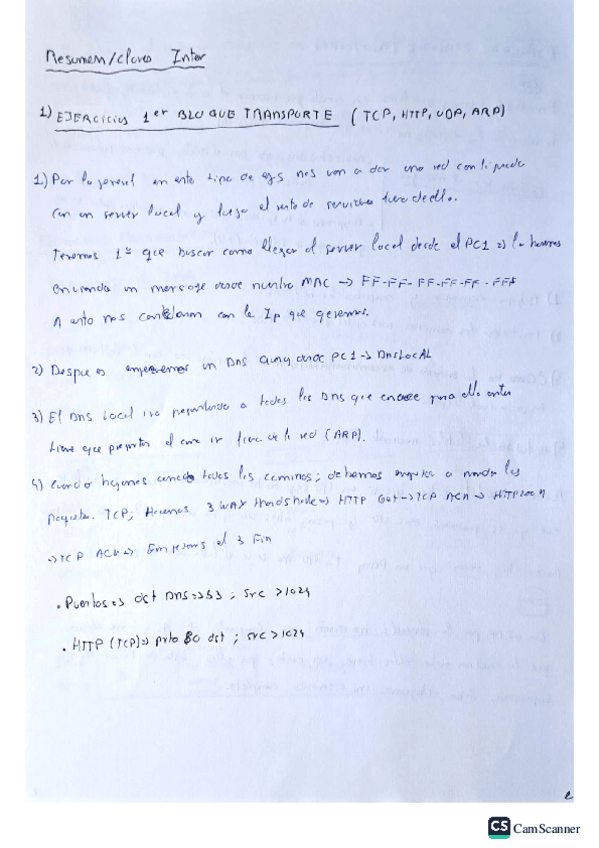 Resumen/claves Inter
1) EJERCICIOS 1er BLOQUE TRANSPORTE (TCP, HTTP, UDP, ARP)
1) Por lo general en este tipo de ejs nos van a dar una red contigüeda
con un server local y luego el resto de servicios fuera de ella.
Tenemos 1º que buscar como llegar al server local desde el PC1 => lo hacemos
enviando un mensaje desde nuestra MAC -> FF-FF-FF-FF-FF-FFF
A esto nos contestaran con la Ip que queremos.
2) Despues un DNS query desde PC1 -> DNS LOCAL
3) El DNS Local ira preguntando a todos los DNS que conoce para ello antes
tiene que preguntar el como ir fuera de la red (ARP).
4) Cuando hayamos todos los caminos; debemos empezar a mandar los
paquetes. TCP; Hacemos 3 WAY Handshake => HTTP Get -> TCP ACK => HTTP 200
=> TCP ACK => Empezamos el 3 Fin
. Puertos => dst DNS => 53 ; src > 1024
. HTTP (TCP) => prto 80 dst ; src > 1024
CS CamScanner